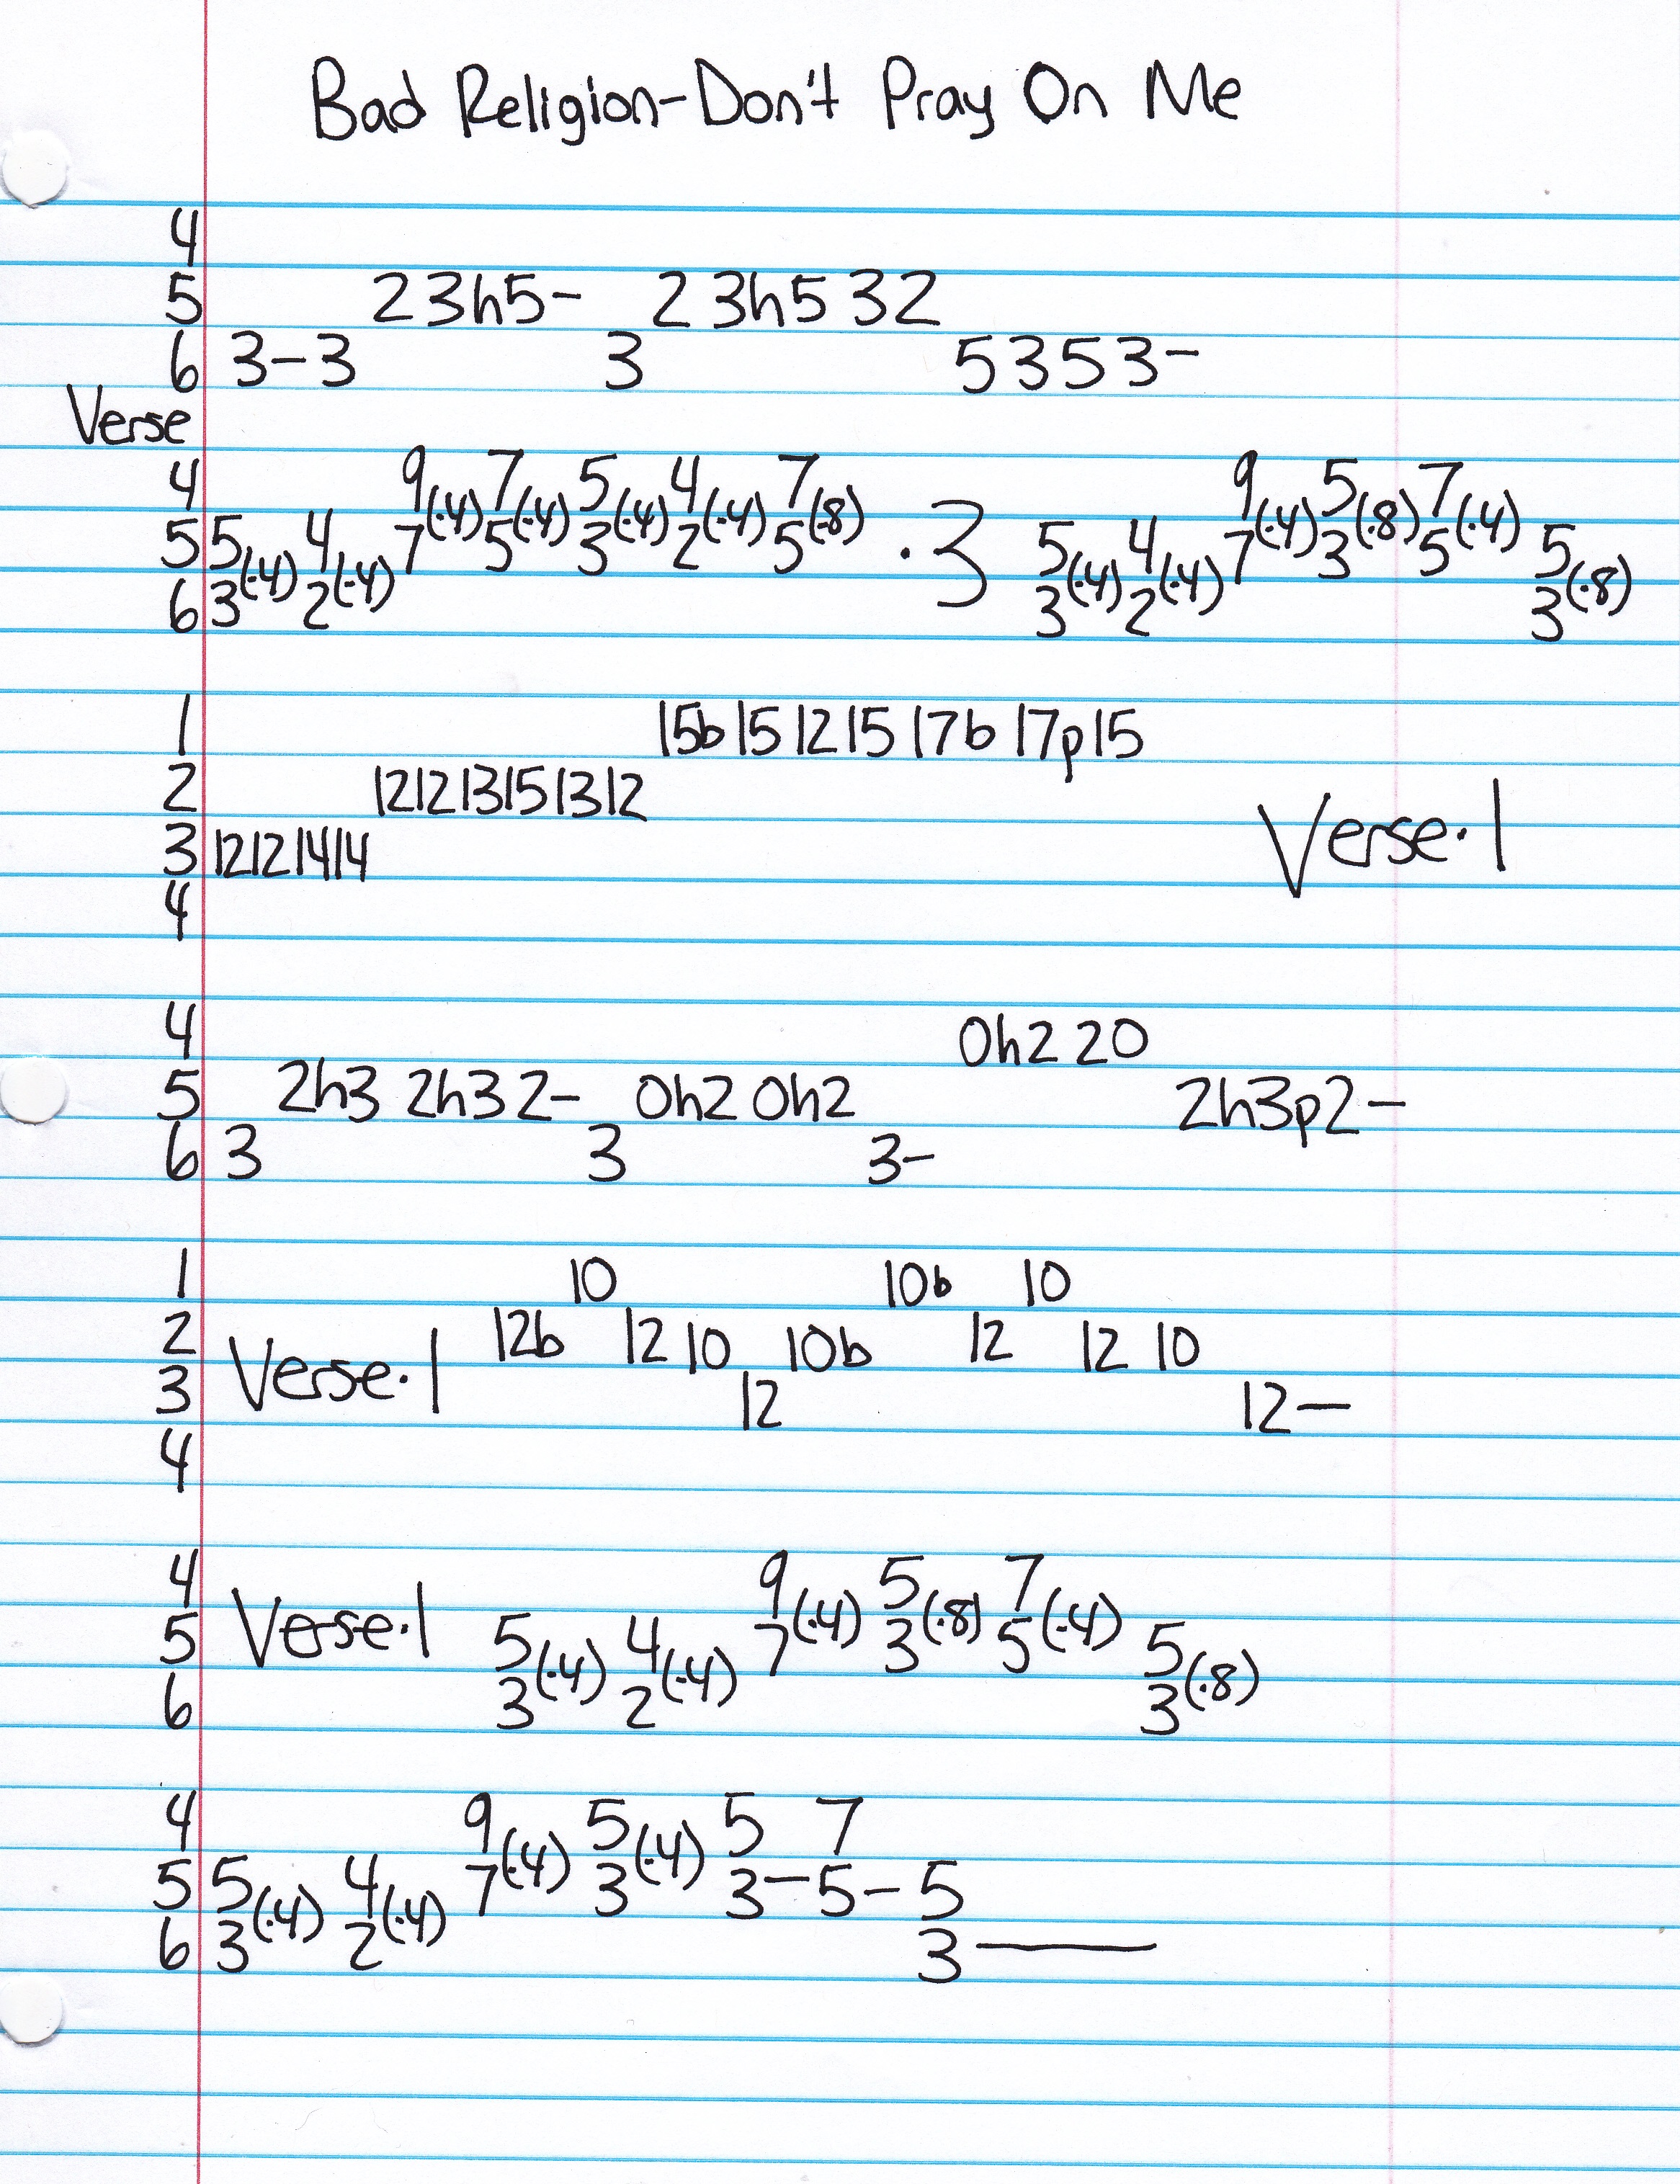 Bad Religion-Don't Pray On Me
4
5 2 3h5- 2 3h5 32
6 3-3 3 5353-
Verse
4 9 7 5 4 7 9 5 7
5 5 4 7(·4) 5(·4) 3(·4) 2(·4) 5(·8) ·3 5 4 7(·4) 3(·8) 5(·4) 5
6 3(·4) 2(·4) 3(·4) 2(·4) 3(·8)
1 15b 15 12 15 17b 17p15
2 12 12 13 15 13 12
3 12 12 14 14 Verse·1
4
4 0h2 20
5 2h3 2h3 2- 0h2 0h2 2h3p2-
6 3 3 3-
1 10 10b 10
2 12b 12 10 10b 12 12 10
3 Verse·1 12 12—
4
4 9 5 7
5 Verse·1 5 4 7(·4) 3(·8) 5(·4) 5
6 3(·4) 2(·4) 3(·8)
4 9 5 5 7
5 5 4 7(·4) 3(·4) 3-5-5
6 3(·4) 2(·4) 3—